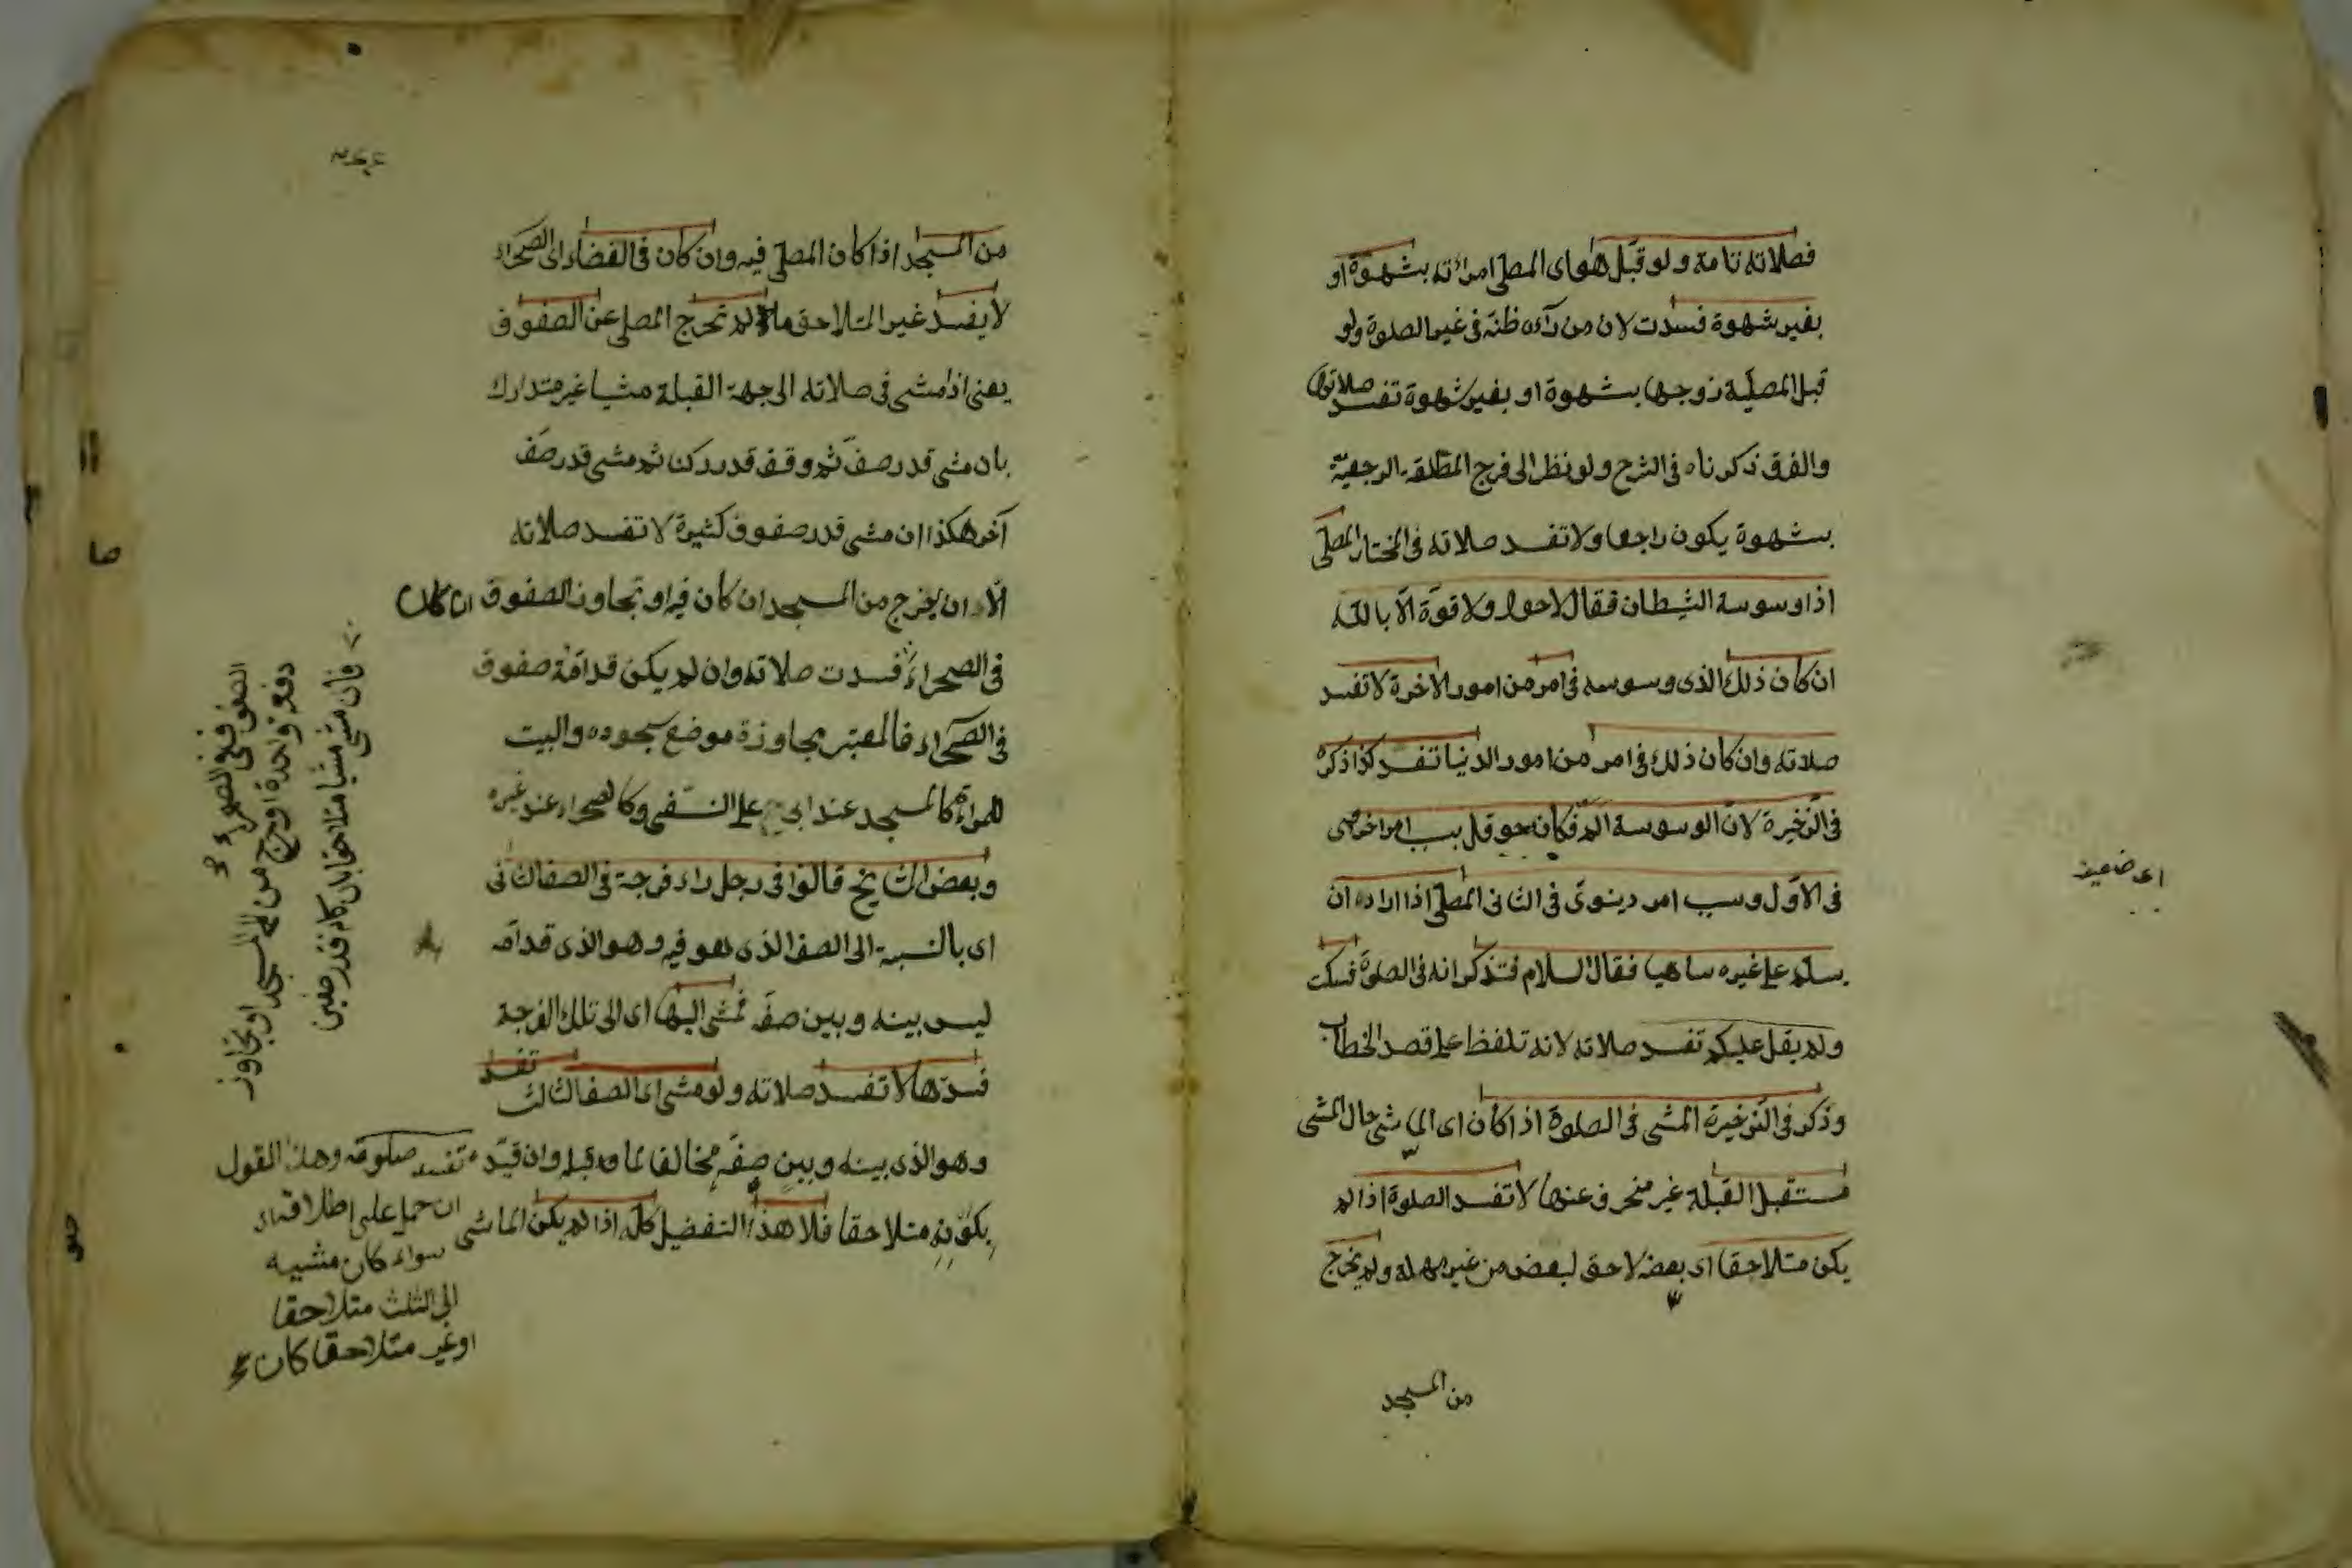 فصلاته تامة ولو قبّل هو اى المصلى امرأته بشهوة او
بغير شهوة فسدت لان من رآه ظنّه فى غير الصلوة ولو
قبل المصليّة زوجها بشهوة او بغير شهوة تفسد صلاتها
والفرق ذكرناه فى الشرح ولو نظر الى فرج المطلقة الرجعيّة
بشهوة يكون راجعا ولا تفسد صلاته فى المختار المصلّى
اذا وسوسة الشيطان فقال لا حول ولا قوة الّا بالله
ان كان ذلك الذى وسوسه فى امر من امور الاخرة لا تفسد
صلاته وان كان ذلك فى امر من امور الدنيا تفسد كذا ذكره
فى الذّخيرة لانّ الوسوسة فكان حوقل بسبب امر اخروى
فى الاوّل وسبب امر دينوىّ فى الثانى المصلّى اذا اراده ان
يسلّم على غيره ساهيا فقال السلام فتذكر انه فى الصلوة فسكت
ولم يقل عليكم تفسد صلاته لانه تلفظ على قصد الخطاب
وذكر فى الذّخيرة المشى فى الصلوة اذا كان اى الماشى حال المشى
مستقبل القبلة غير منحرف عنها لا تفسد الصلوة اذا لم
يكن متلاحقا اى بعضه لاحق لبعض من غير مهملة ولم يخرج
من المسجد
اى ضعيف
من المسجد اذا كان المصلّى فيه وان كان فى الفضاء اى الصحراء
لا يفسد غير المتلاحق ما لم تخرج المصلى عن الصفوف
يعنى اذا مشى فى صلاته الى جهة القبلة مشيا غير متدارك
بان مشى قدر صفّ ثم وقف قدر ركنا ثم مشى قدر صف
آخر هكذا ان مشى قدر صفوف كثيرة لا تفسد صلاته
الّا ان يخرج من المسجد ان كان فيه او تجاوز الصفوف ان كان
فى الصحراء فسدت صلاته وان لم يكن قدامه صفوف
فى الصحراء فالمعتبر مجاوزة موضع سجوده والبيت
للمرأة كالمسجد عند ابى على النسفى وكالصحراء عند غيره
وبعض المشايخ قالوا فى رجل راء فرجة فى الصف الثانى
اى بالنسبة الى الصف الذى هو فيه وهو الذى قدامه
ليس بينه وبين صفّ فمشى اليها اى الى تلك الفرجة
فسدّها لا تفسد صلاته ولو مشى اى الصف الثالث تفسد
وهو الذى بينه وبين صفّه مخالفا لما قبله وان قيّد
بكونه متلاحقا فلا هذا التفضيل كلّه اذا لم يكن الماشى
تفسد صلوته وهذا القول
ان حمل على اطلاقه
سواء كان مشيه
الى الثلث متلاحقا
او غير متلاحقا كان
فان مشى مشيا متلاحقا بان كان قدر صفين
دفعة واحدة او خرج من المسجد او تجاوز
الصفوف فى الصحراء